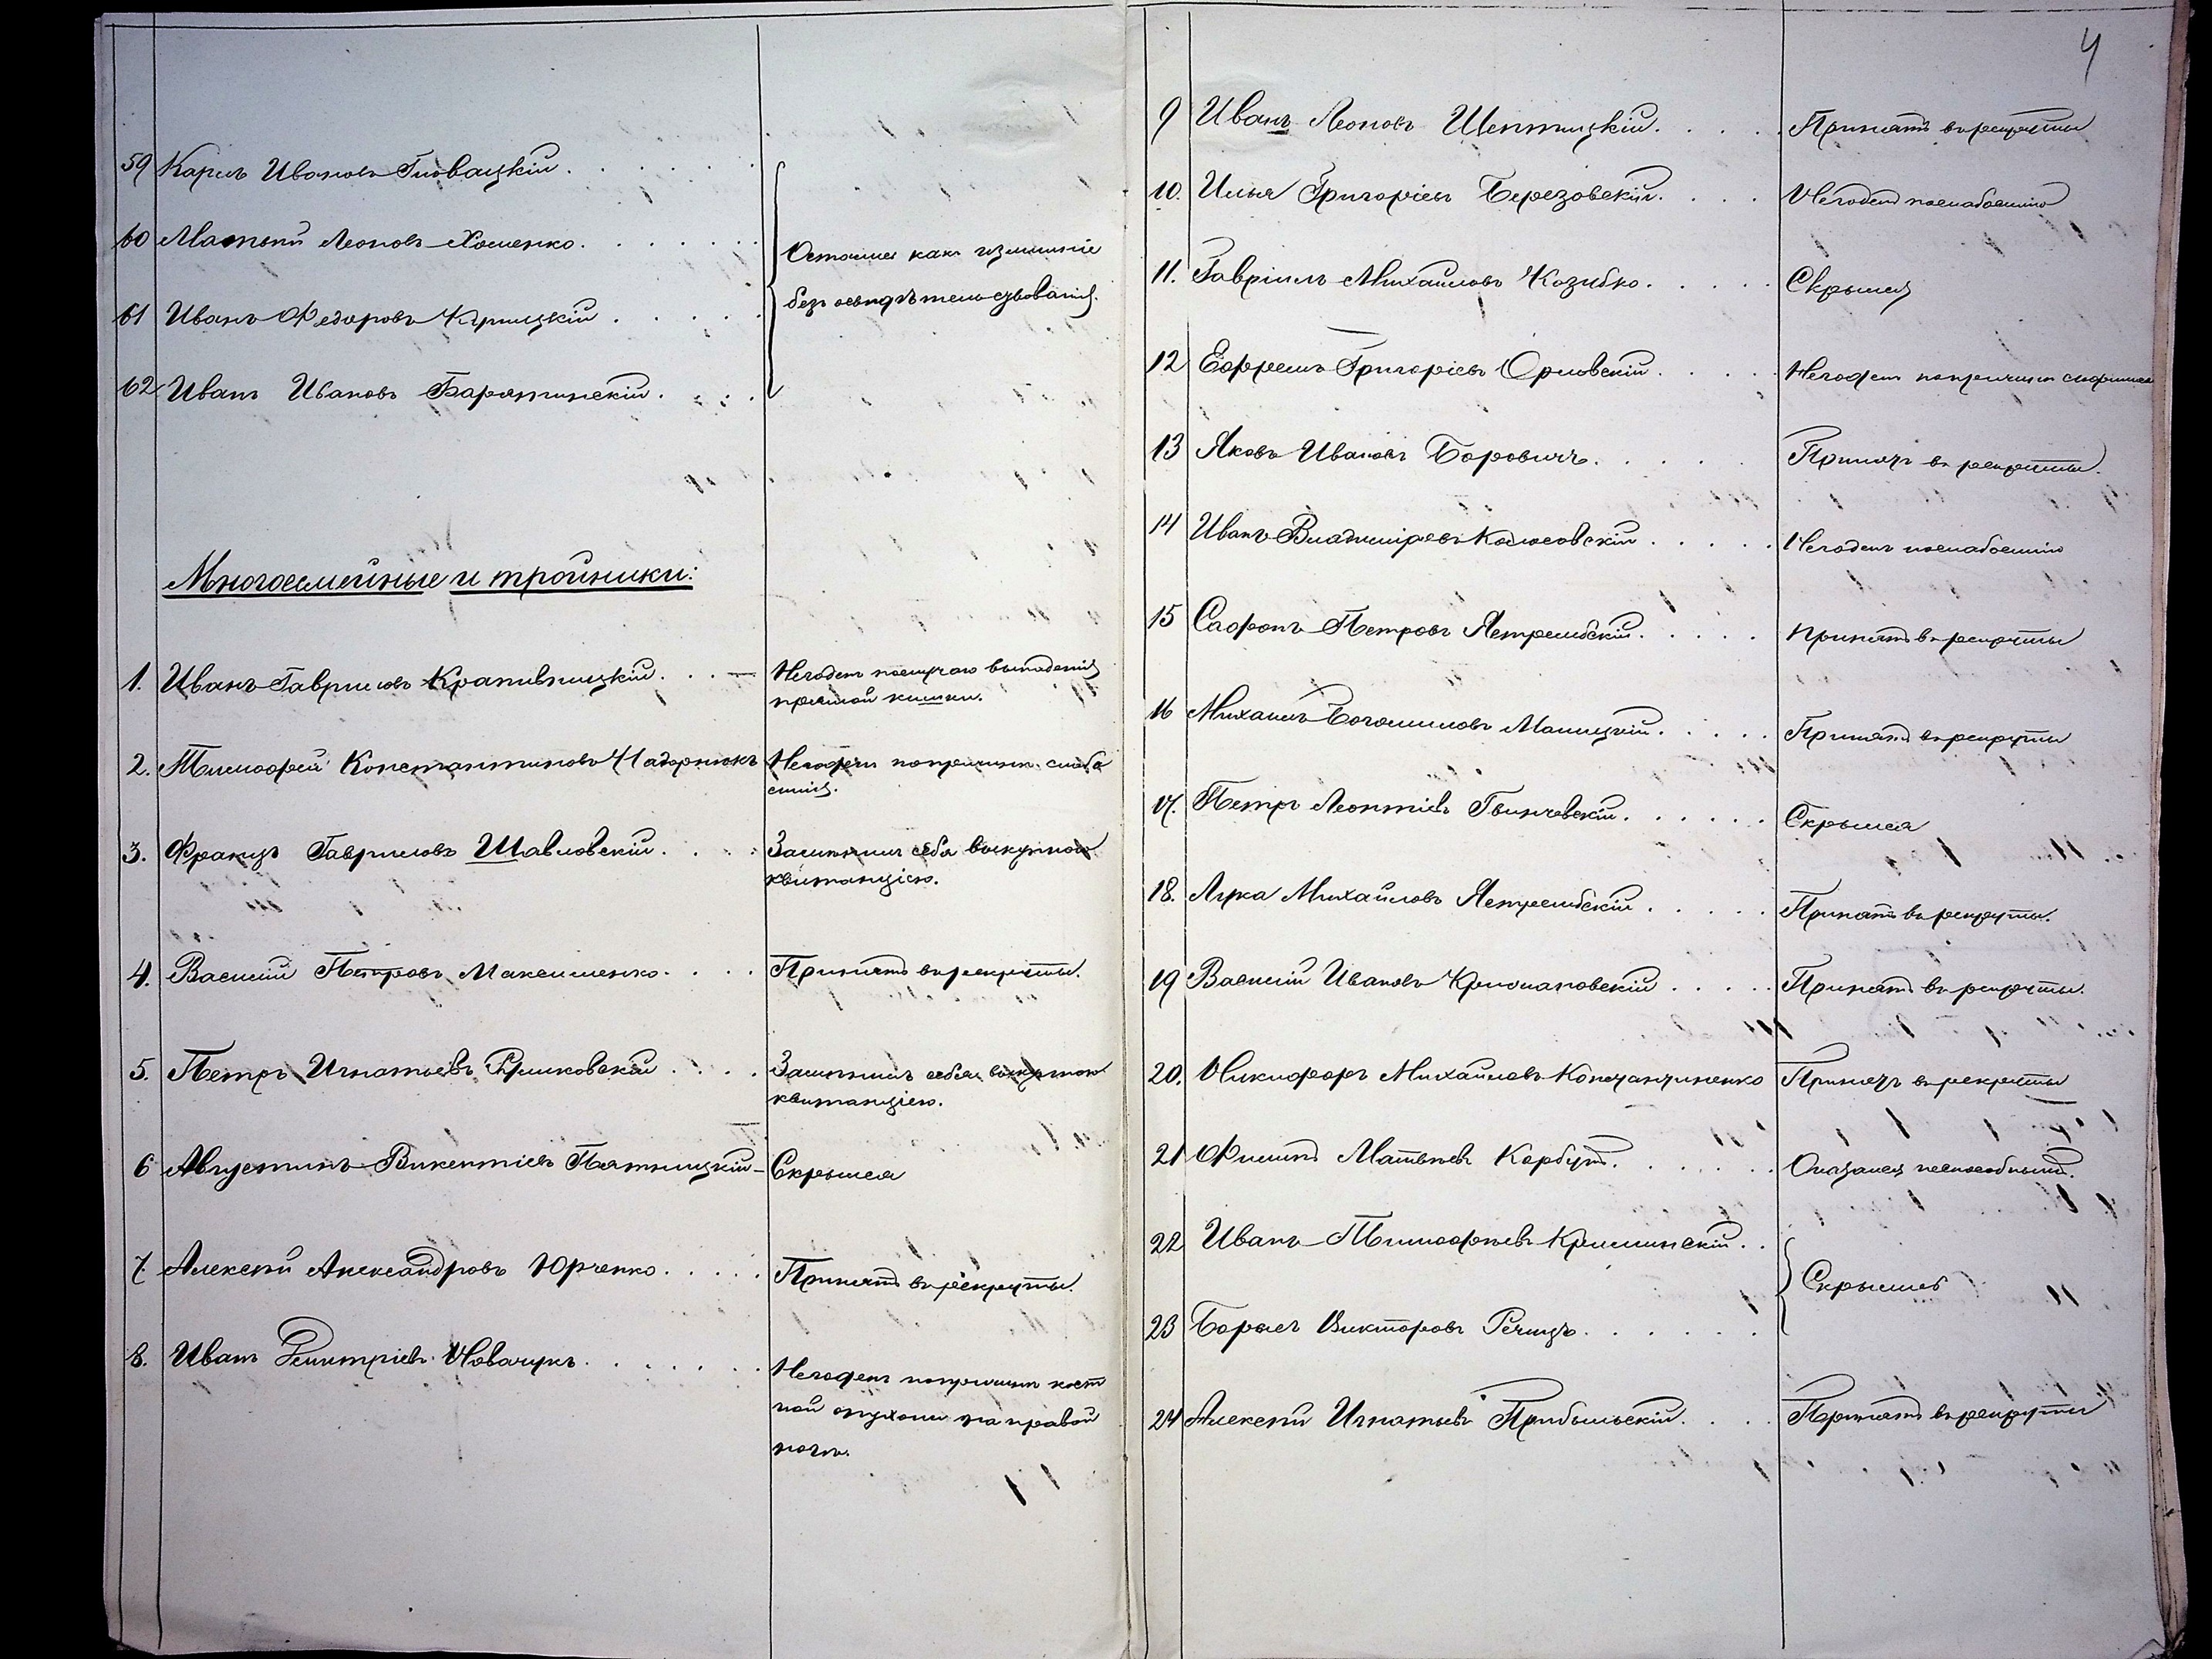 59 Карлъ Ивановъ Гловацкій
60 Матвѣй Леоновъ Хоменко
61 Иванъ Федоровъ Крицкій
62 Иванъ Ивановъ Барятинскій
Остались какъ излишніе
безъ освидѣтельствованія.
Многосемейные и тройники:
1. Иванъ Гавриловъ Крапивницкій
Негоденъ по случаю выпаденія
прямой кишки.
2. Тимофей Константиновъ Надорнюкъ
Негоденъ по причинѣ слабо
силія.
3. Францъ Гавриловъ Шавловскій
Замѣнилъ себя выкупною
квитанціею.
4. Василій Петровъ Максименко
Принятъ въ рекруты.
5. Петръ Игнатьевъ
Замѣнилъ себя выкупною
квитанціею.
6 Августинъ Викентіевъ Пятницкій
Скрылся
7. Алексѣй Александровъ Юрченко
Принятъ въ рекруты.
8. Иванъ Дмитріевъ Новачукъ
Негоденъ по причинѣ кост
ной опухоли на правой
ногѣ.
4
9 Иванъ Леоновъ Шептицкій. Принятъ въ рекруты
10. Илья Григоріевъ Березовскій. Негоденъ по слабосилію
11. Гавріилъ Михайловъ Козибко. Скрылся
12 Ефремъ Григоріевъ Орловскій. Негоденъ по причинѣ
13 Яковъ Ивановъ Боровичъ. Принятъ въ рекруты.
14 Иванъ Владиміровъ Негоденъ по слабосилію
15 Сафонъ Петровъ Ястрембскій. Принятъ въ рекруты
16 Михаилъ Богомиловъ Малицкій. Принятъ въ рекруты
17. Петръ Леонтіевъ Гвинчевскій. Скрылся
18. Лука Михайловъ Ястрембскій. Принятъ въ рекруты.
19 Василій Ивановъ Принятъ въ рекруты.
20. Никифоръ Михайловъ Константиненко Принятъ въ рекруты
21 Филиппъ Матвѣевъ Корбутъ. Оказался неспособнымъ.
22 Иванъ Тимофѣевъ
Скрылись
23 Борисъ Викторовъ Речицъ.
24 Алексѣй Игнатьевъ Прибыльскій. Принятъ въ рекруты